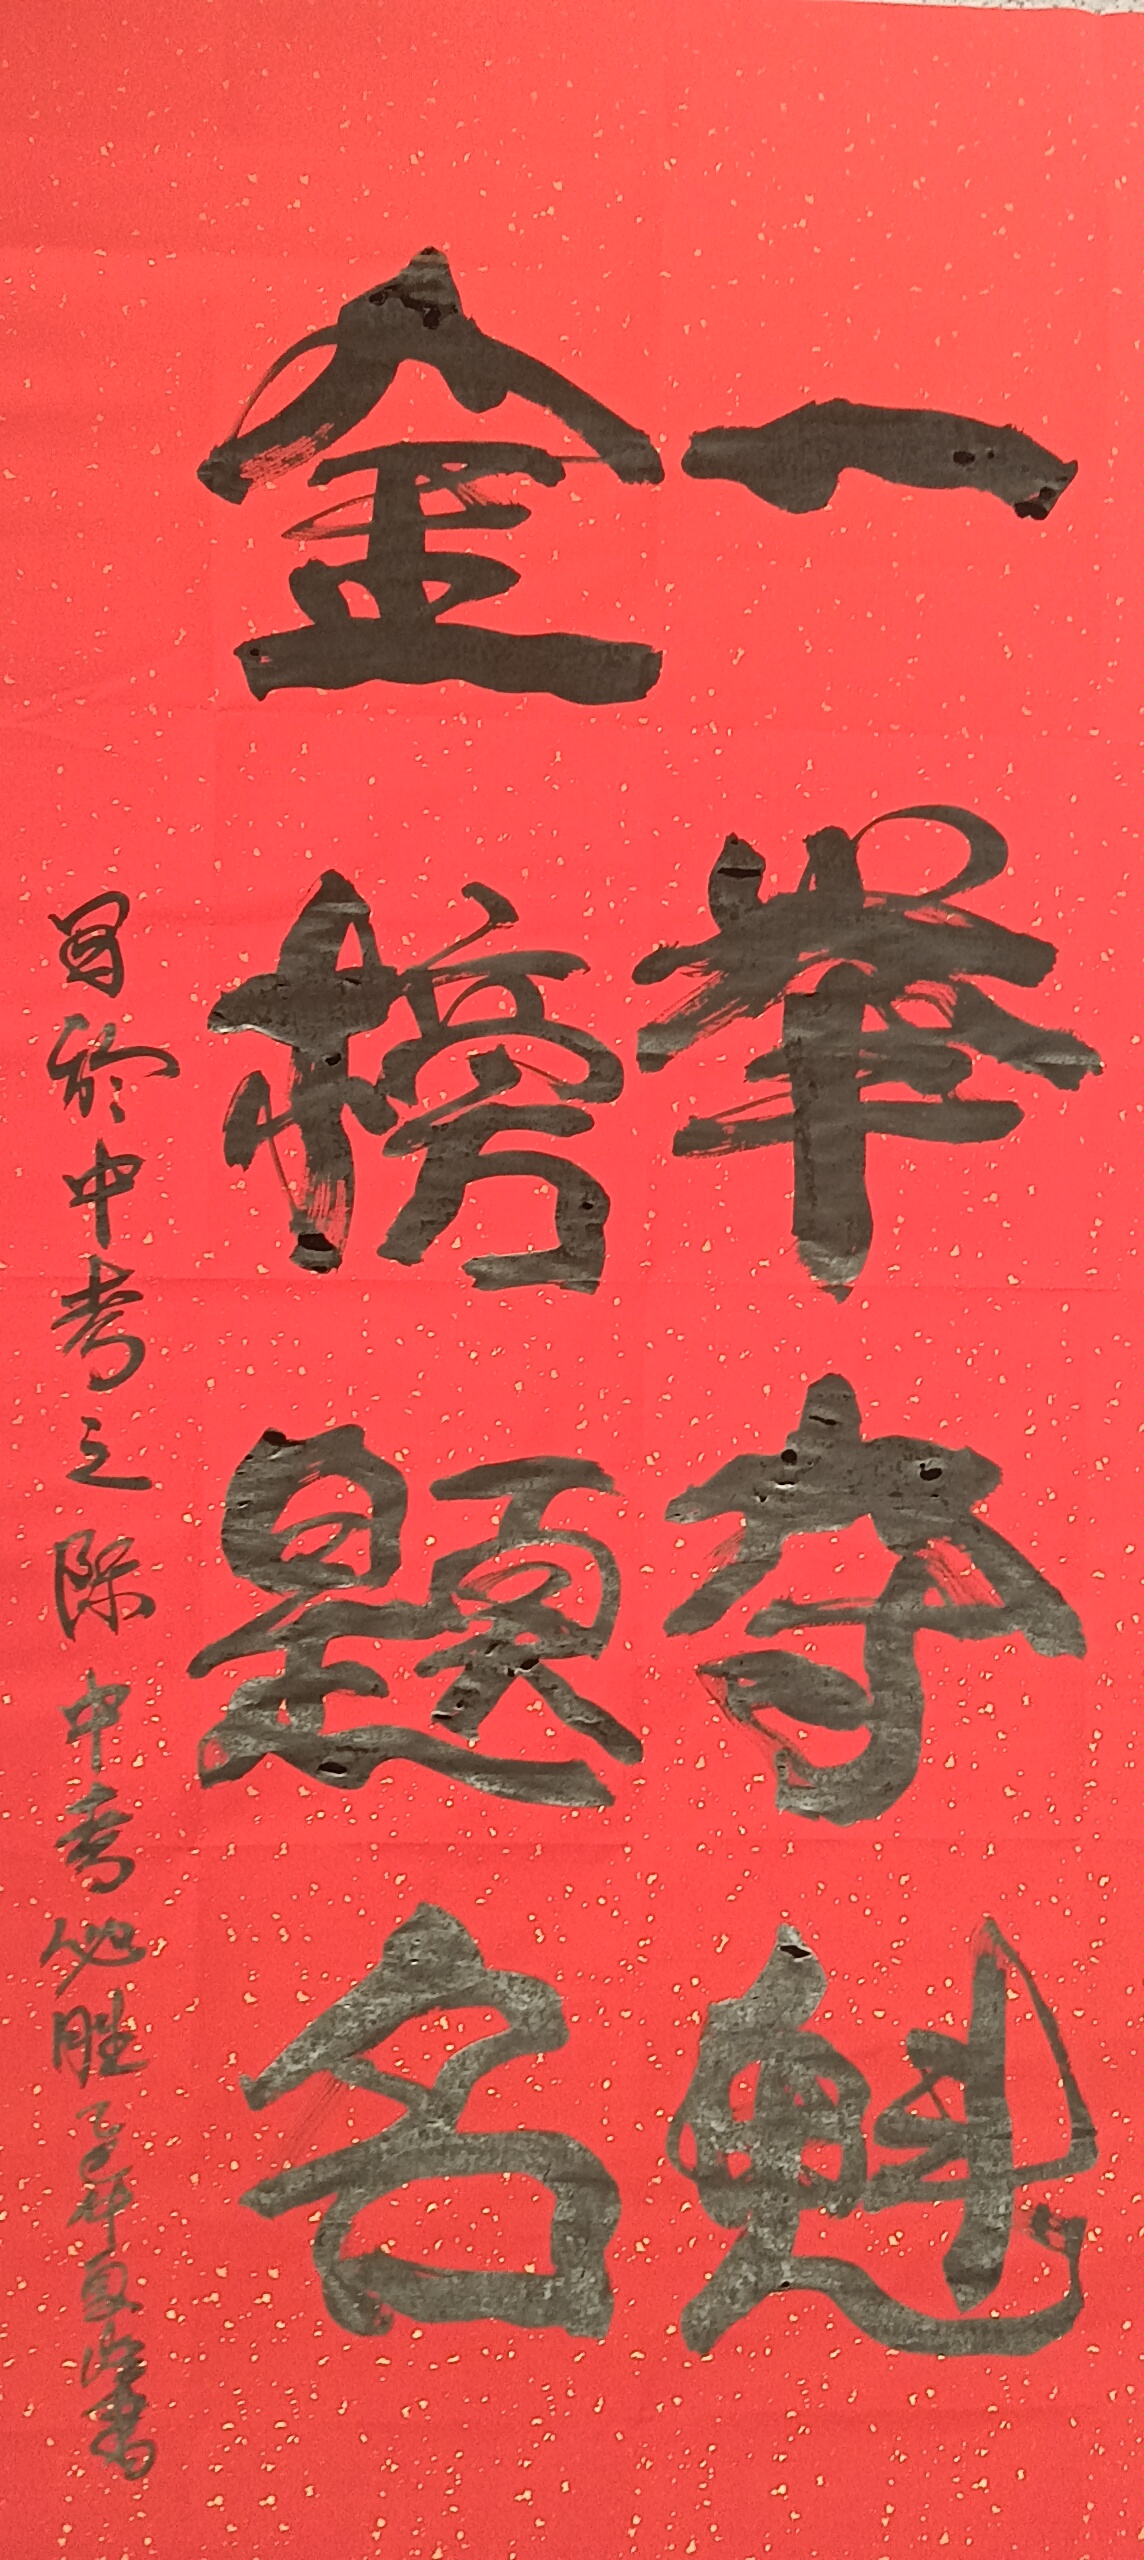 一举夺魁
金榜题名
于中考之际中考必胜乙巳年夏